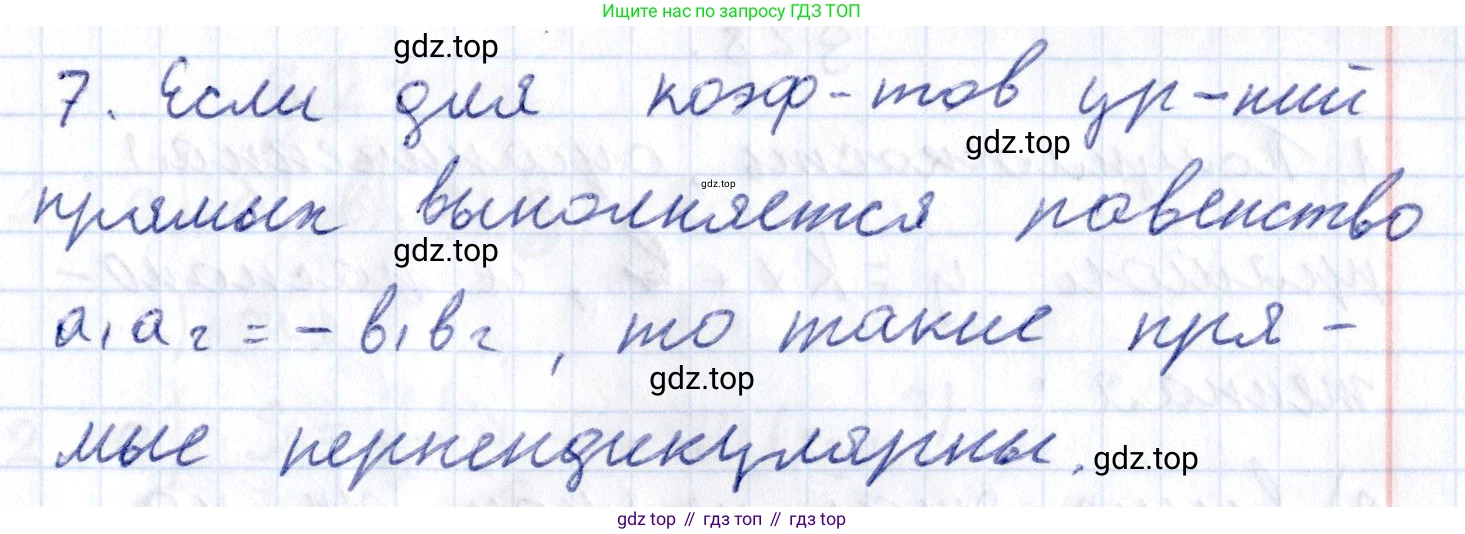 Ищите нас по запросу ГДЗ ТОП
gdz.top
7. Если для коэф-тов ур-ний
gdz.top
gdz.top
прямых выполняется равенство
gdz.top
a₁a₂ = - b₁b₂, то такие пря-
gdz.top
мые перпендикулярны.
gdz.top
gdz top // гдз топ // gdz top